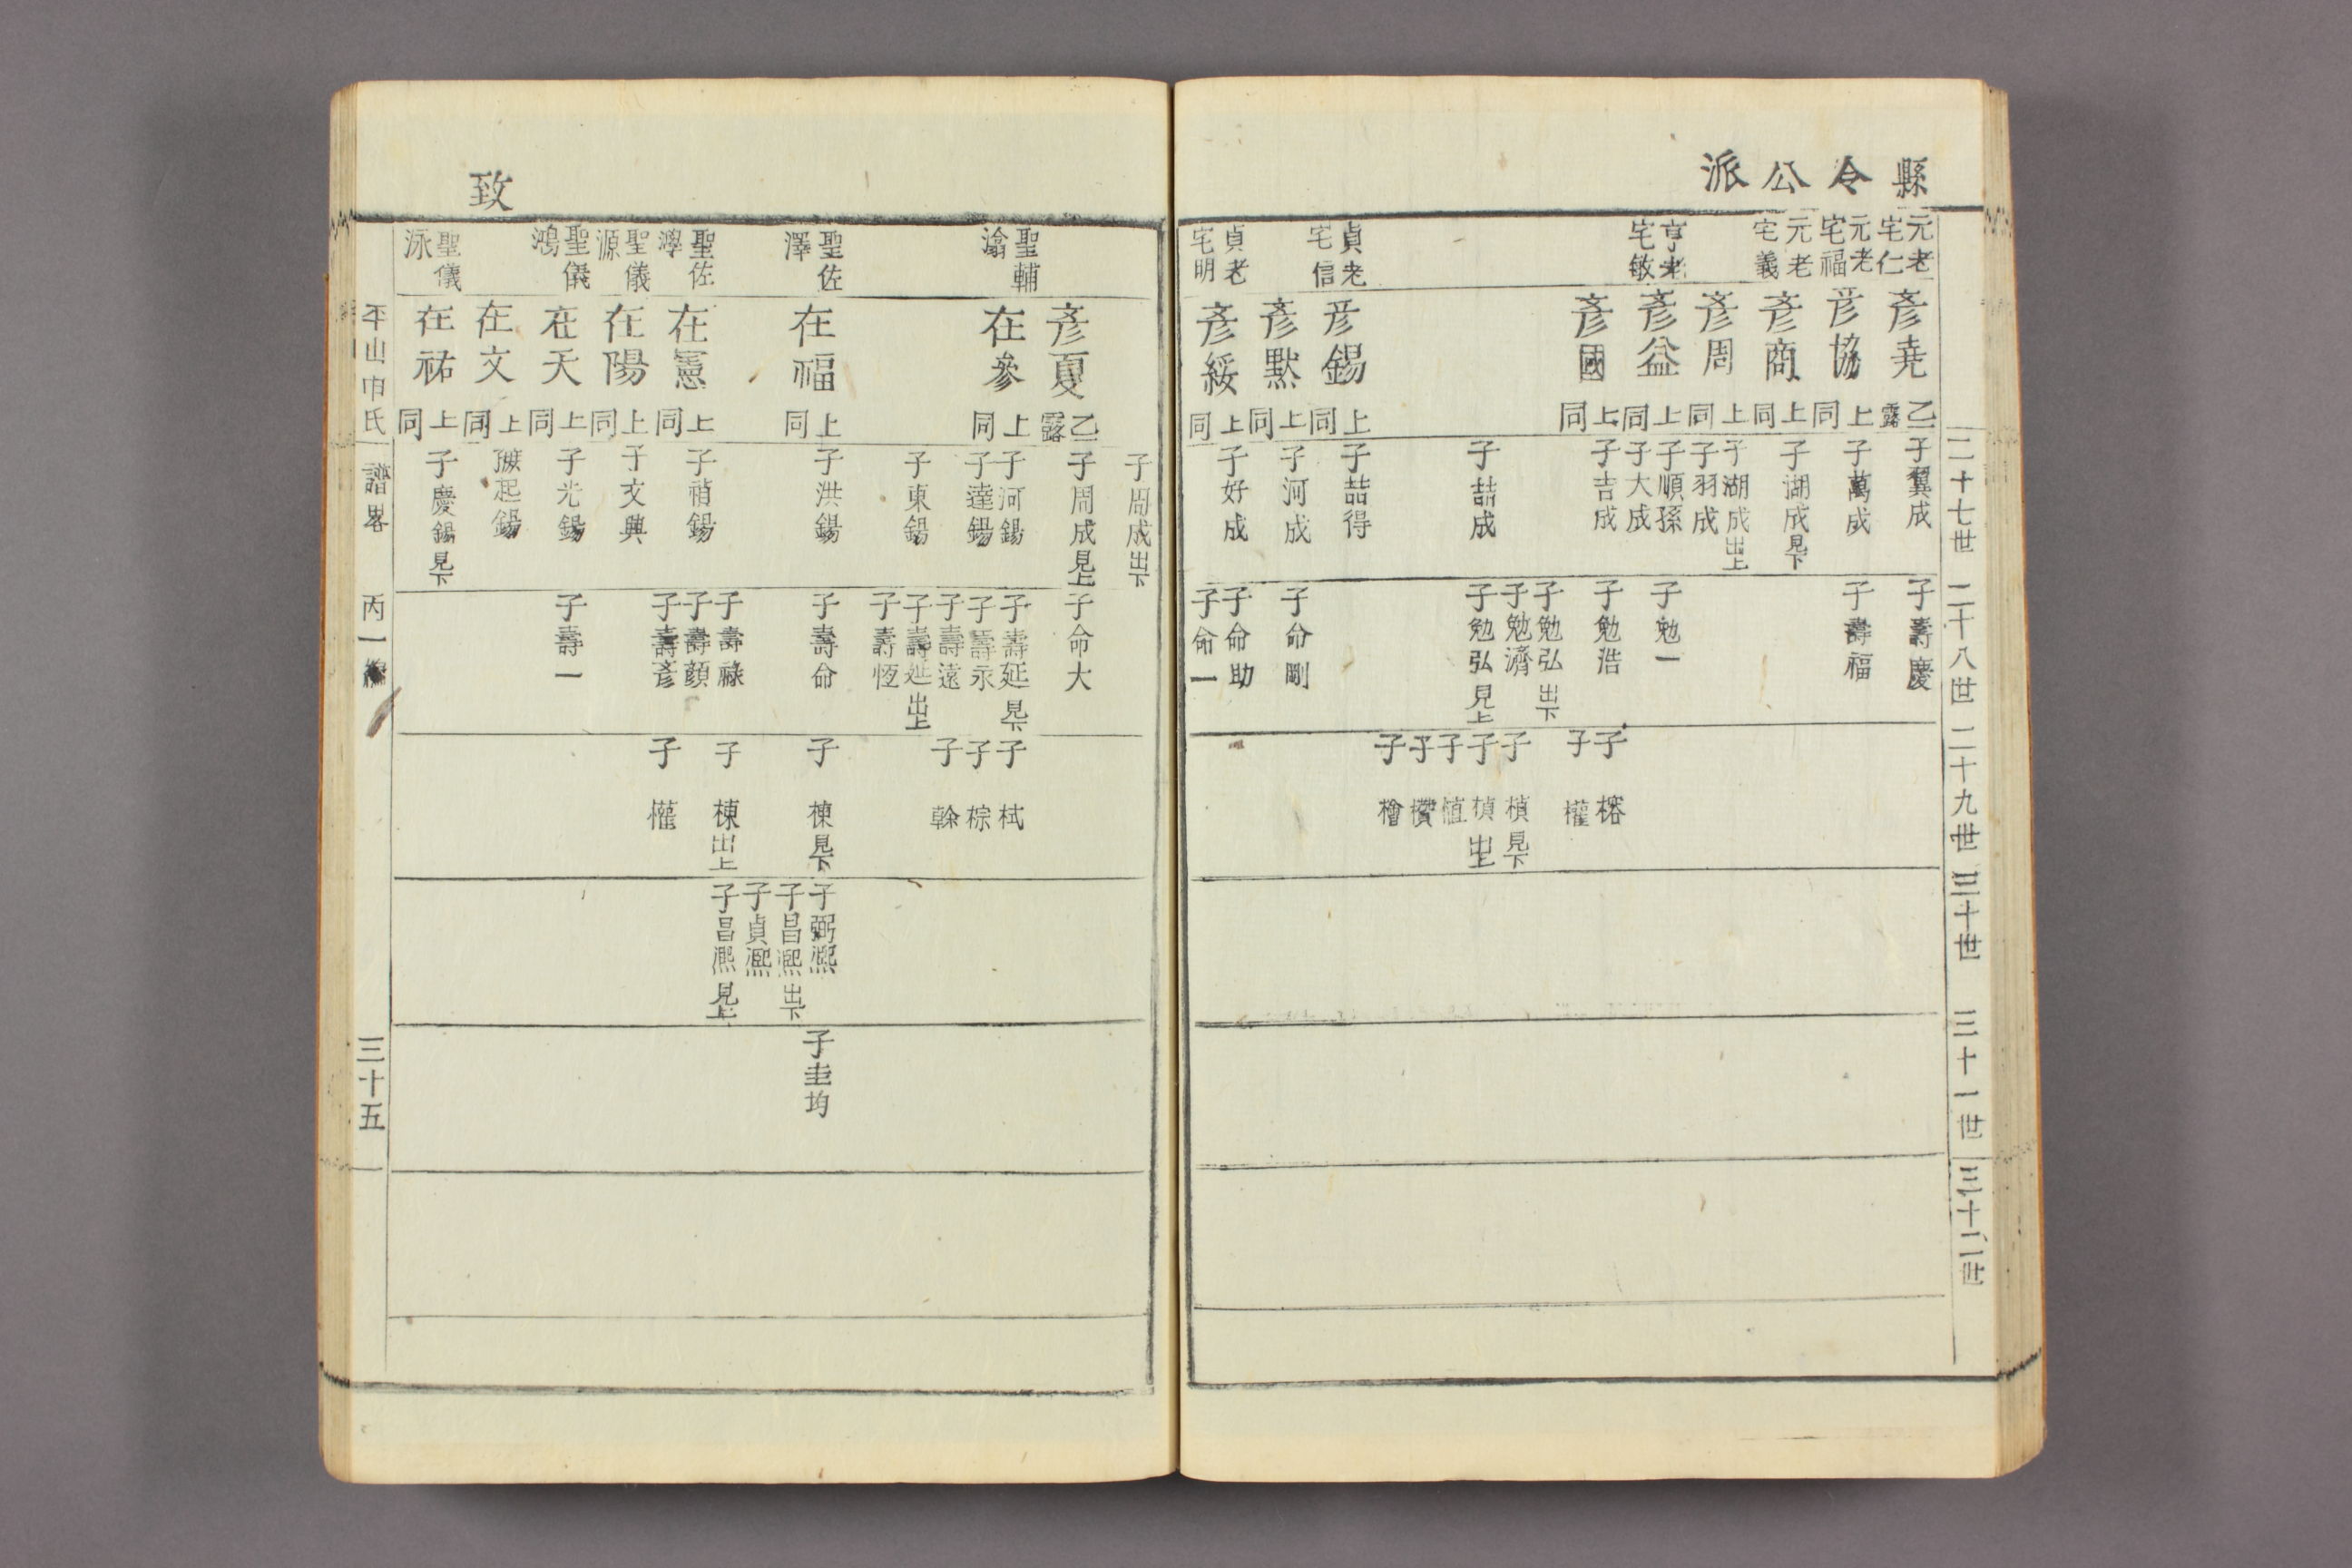 縣令公派
二十七世
二十八世
二十九世
三十世
三十一世
三十二世
元老
宅仁
元老
宅福
元老
宅義
亨老
宅敏
貞老
宅信
貞老
宅明
彥堯
乙露
彥協
上同
彥商
上同
彥周
上同
彥益
上同
彥國
上同
彥錫
上同
彥默
上同
彥綏
上同
子翼成
子萬成
子湖成見下
子湖成出上
子羽成
子順孫
子大成
子吉成
子喆成
子喆得
子河成
子好成
子壽慶
子壽福
子勉一
子勉浩
子勉弘出下
子勉濟
子勉弘見上
子命剛
子命助
子命一
子榕
子權
子楨見下
子楨出上
子植
子欑
子檜
致
聖輔
瀹
聖佐
澤
聖佐
澕
聖儀
源
聖儀
鴻
聖儀
泳
彥夏
乙露
在參
上同
在福
上同
在憲
上同
在陽
上同
在天
上同
在文
上同
在祐
上同
子周成出下
子周成見上
子河錫
子達錫
子東錫
子洪錫
子禎錫
子文典
子光錫
起錫
子慶錫見下
子命大
子壽延見下
子壽永
子壽遠
子壽延出上
子壽恆
子壽命
子壽祿
子壽顔
子壽彥
子壽一
子栻
子棕
子榦
子棟見下
子棟出上
子權
子弼熙
子昌熙出下
子貞熙
子昌熙見上
子圭均
平山申氏
譜畧
丙一編
三十五